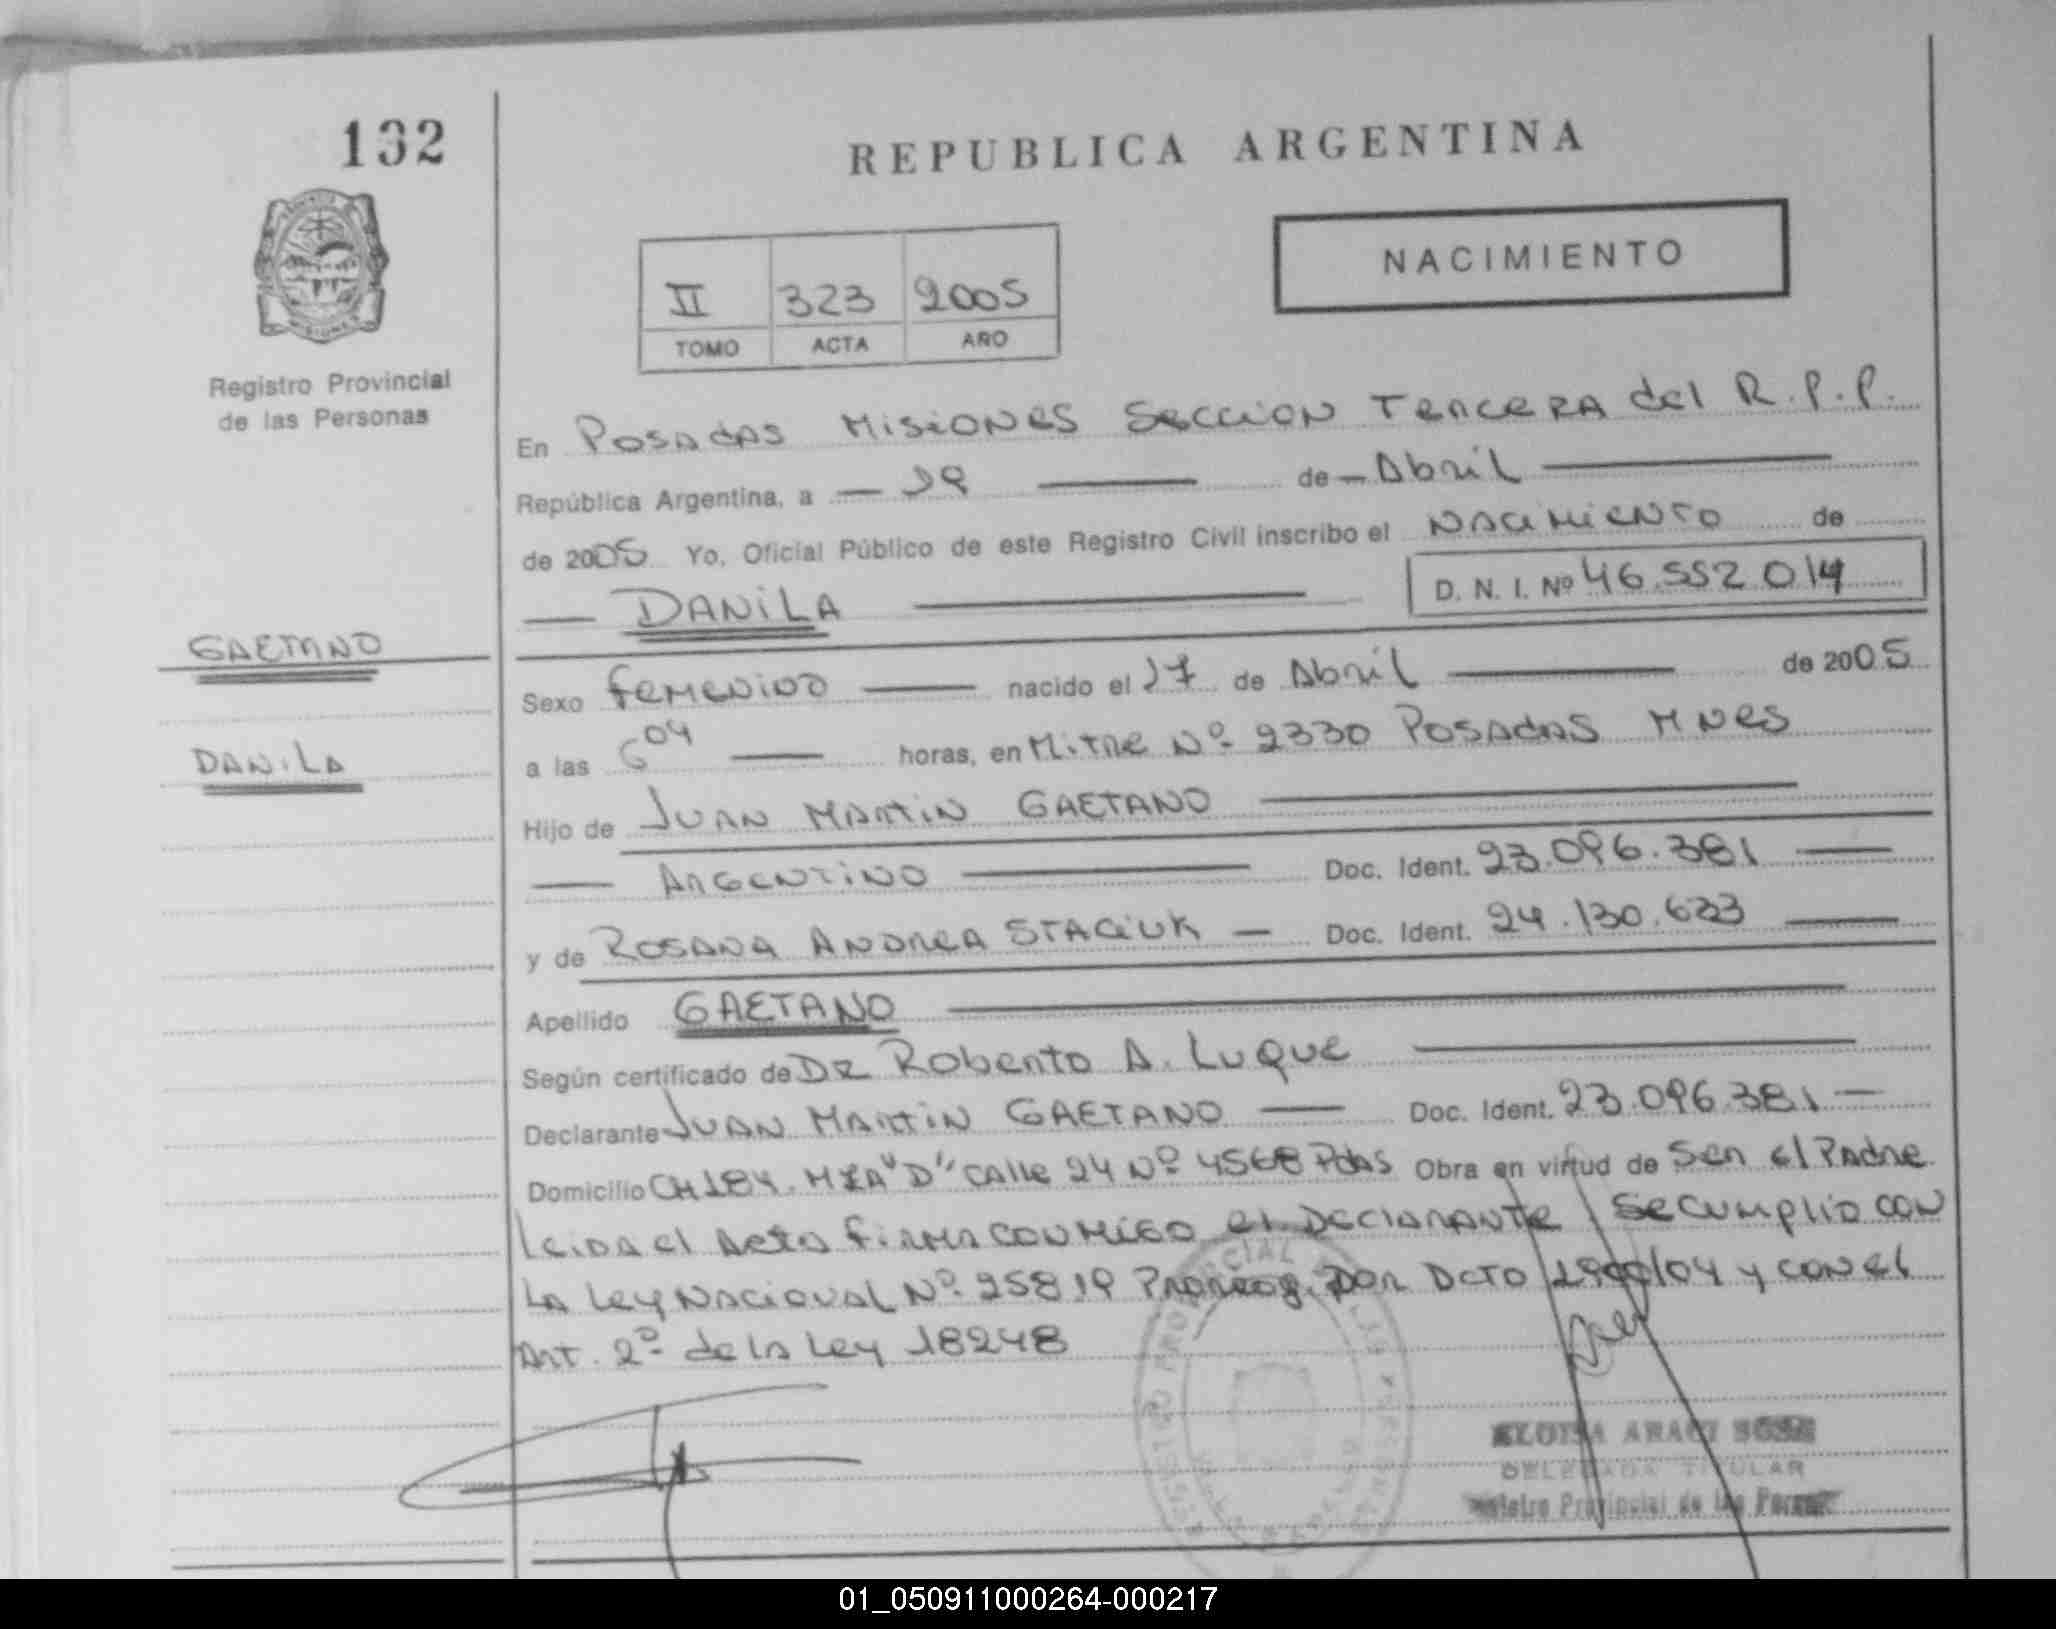 132
REPUBLICA ARGENTINA
NACIMIENTO
II 323 2005
TOMO ACTA AÑO
Registro Provincial
de las Personas
En Posadas Misiones Seccion Tercera del R.P.P.
República Argentina, a de Abril
de 2005 Yo, Oficial Público de este Registro Civil inscribo el Nacimiento de
DANILA D. N. I. Nº 46.552 014
GAETANO
Sexo Femenino nacido el 17 de Abril de 2005
DANILA
a las 6 04 horas, en Mitre Nº 2330 Posadas Mnes
Hijo de Juan Martin GAETANO
Argentino Doc. Ident. 23.096.381
y de Rosana Andrea STACIUK Doc. Ident. 24.130.633
Apellido GAETANO
Según certificado de Dr Roberto A. Luque
Declarante Juan Martin GAETANO Doc. Ident. 23.096.381
Domicilio CH 184. MZA "D" Calle 24 Nº 4568 Pdas Obra en virtud de Ser el Padre
leida el Acta firma conmigo el Declarante Se cumplio con
La Ley Nacional Nº 25819 Prorrog. por Dcto 1900/04 y con el
Art. 2º de la Ley 18248
REGISTRO PROVINCIAL DE LAS PERSONAS
DELEGADA TITULAR
Registro Provincial de las Personas
01_050911000264-000217